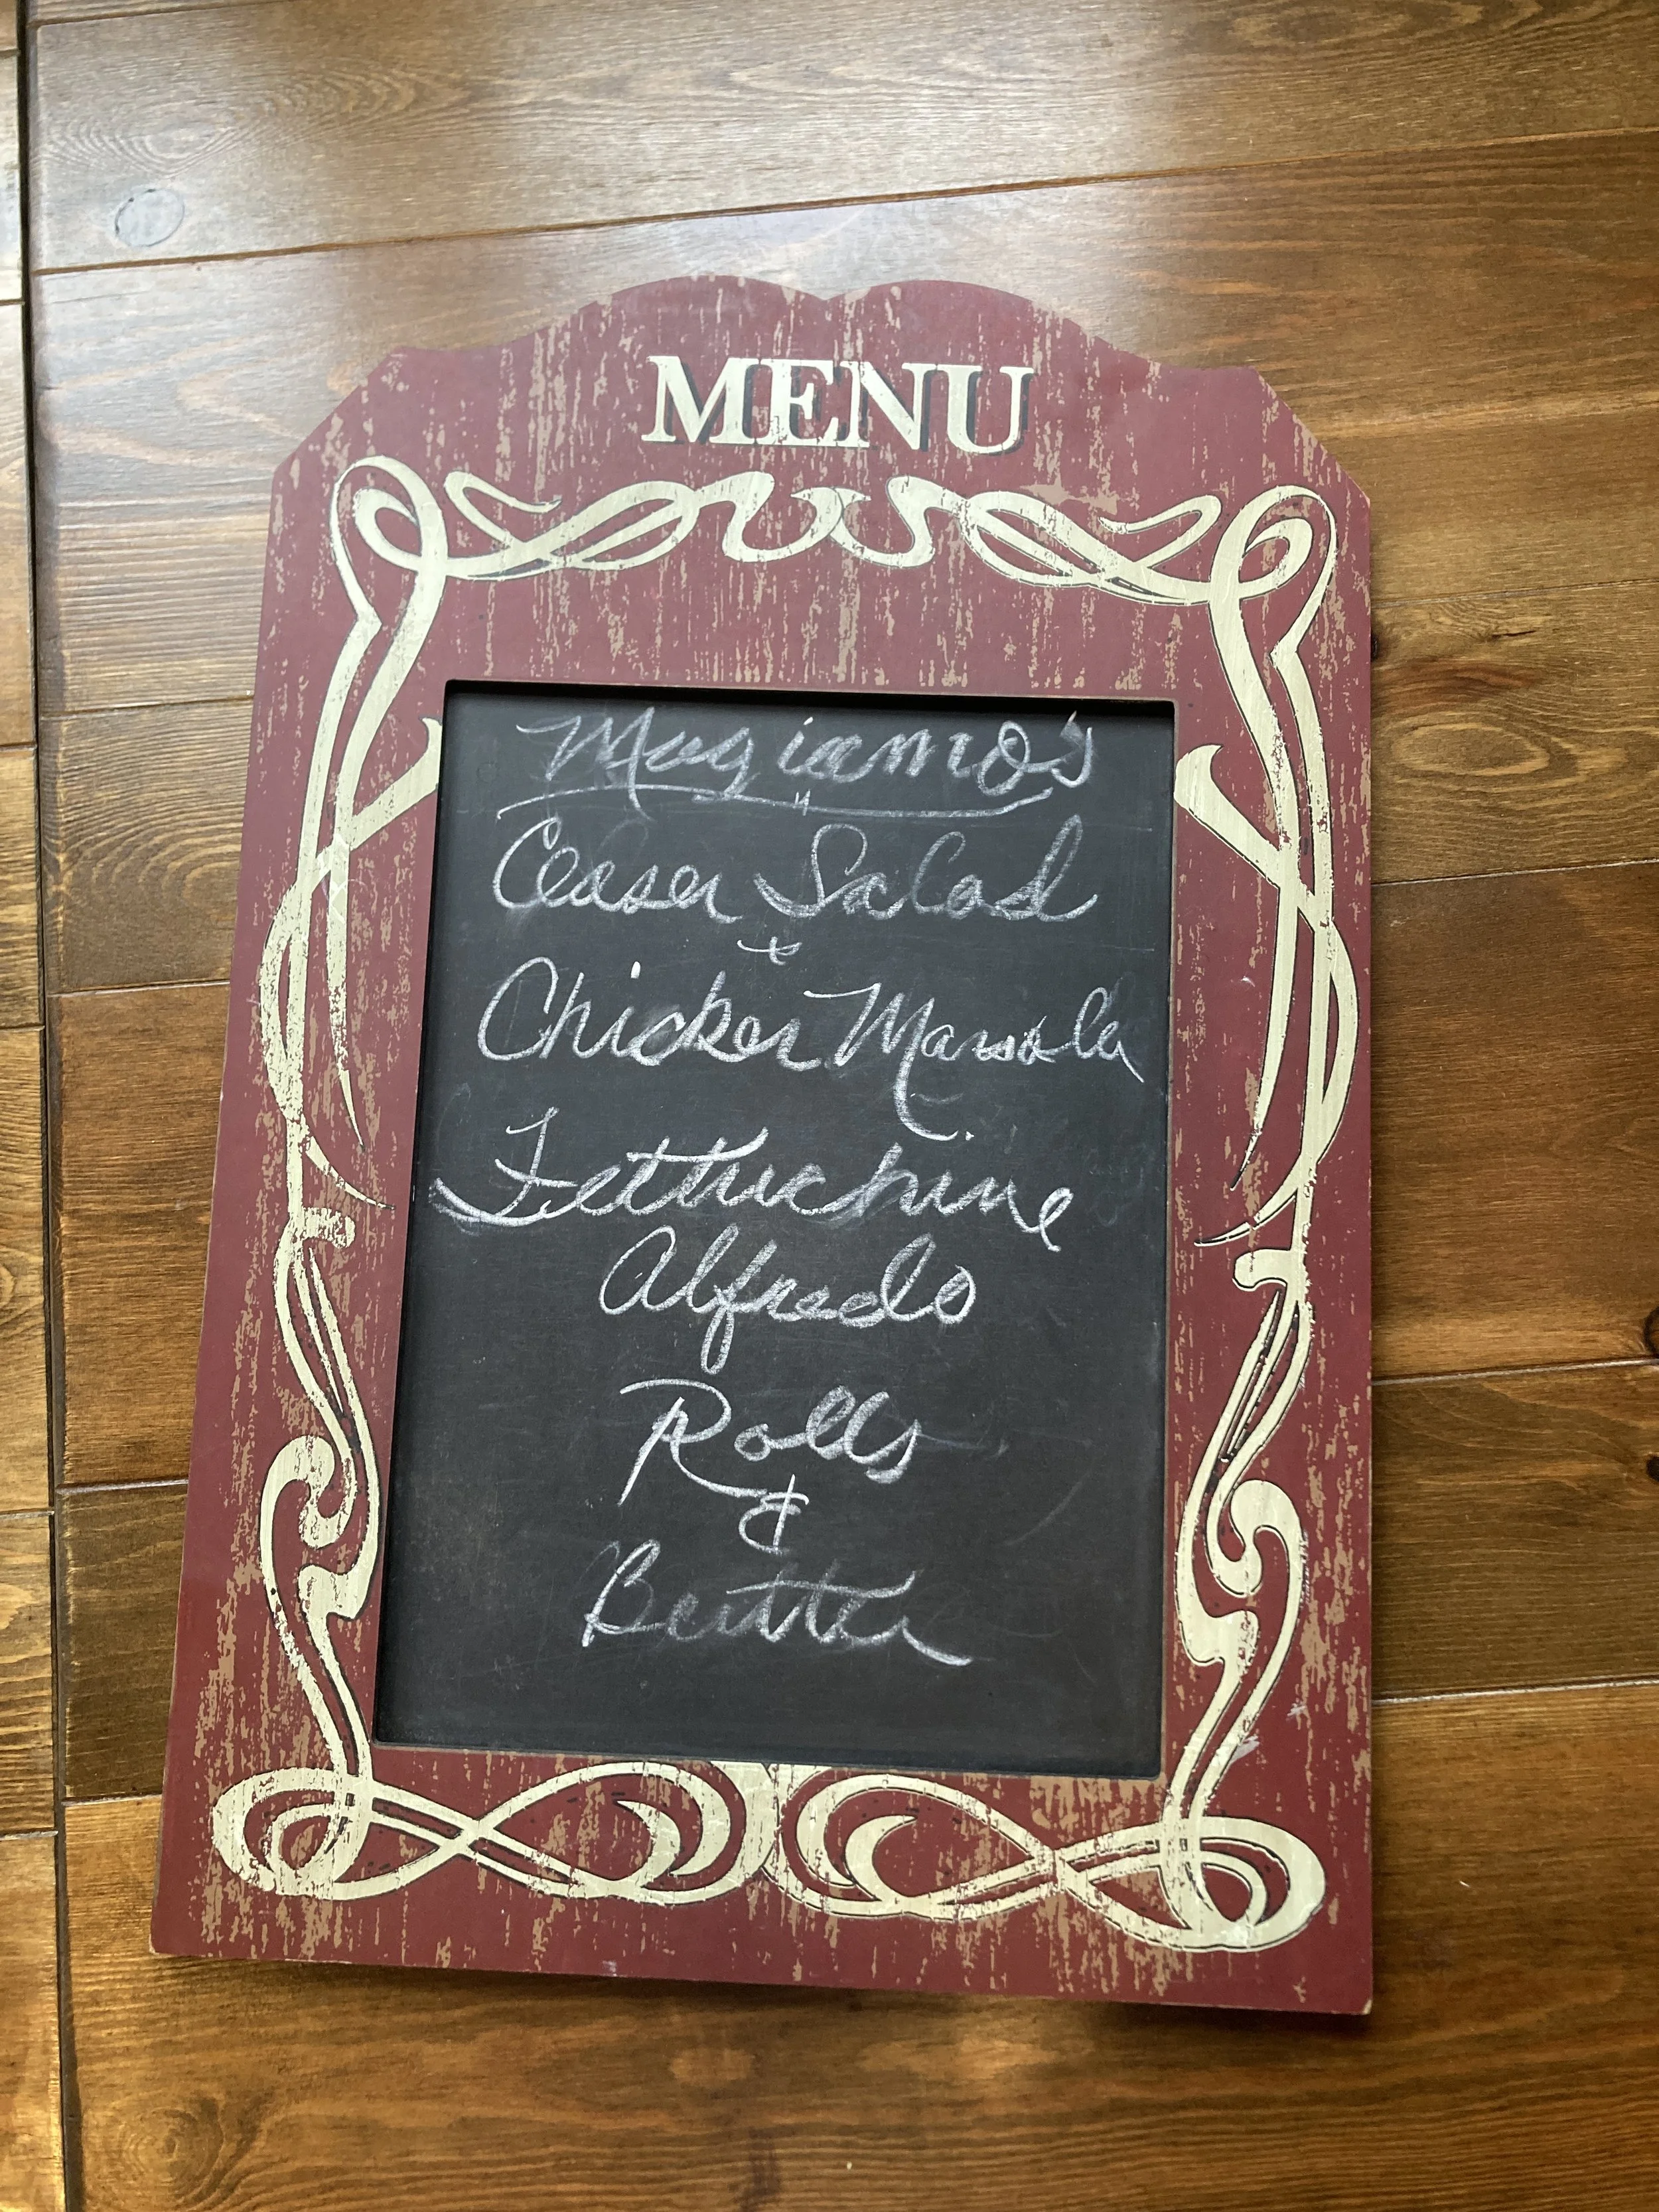 MENU
Mugiamo's
Ceaser Salad
+
Chicken Marsala
Fettuchine
Alfredo
Rolls
&
Butter